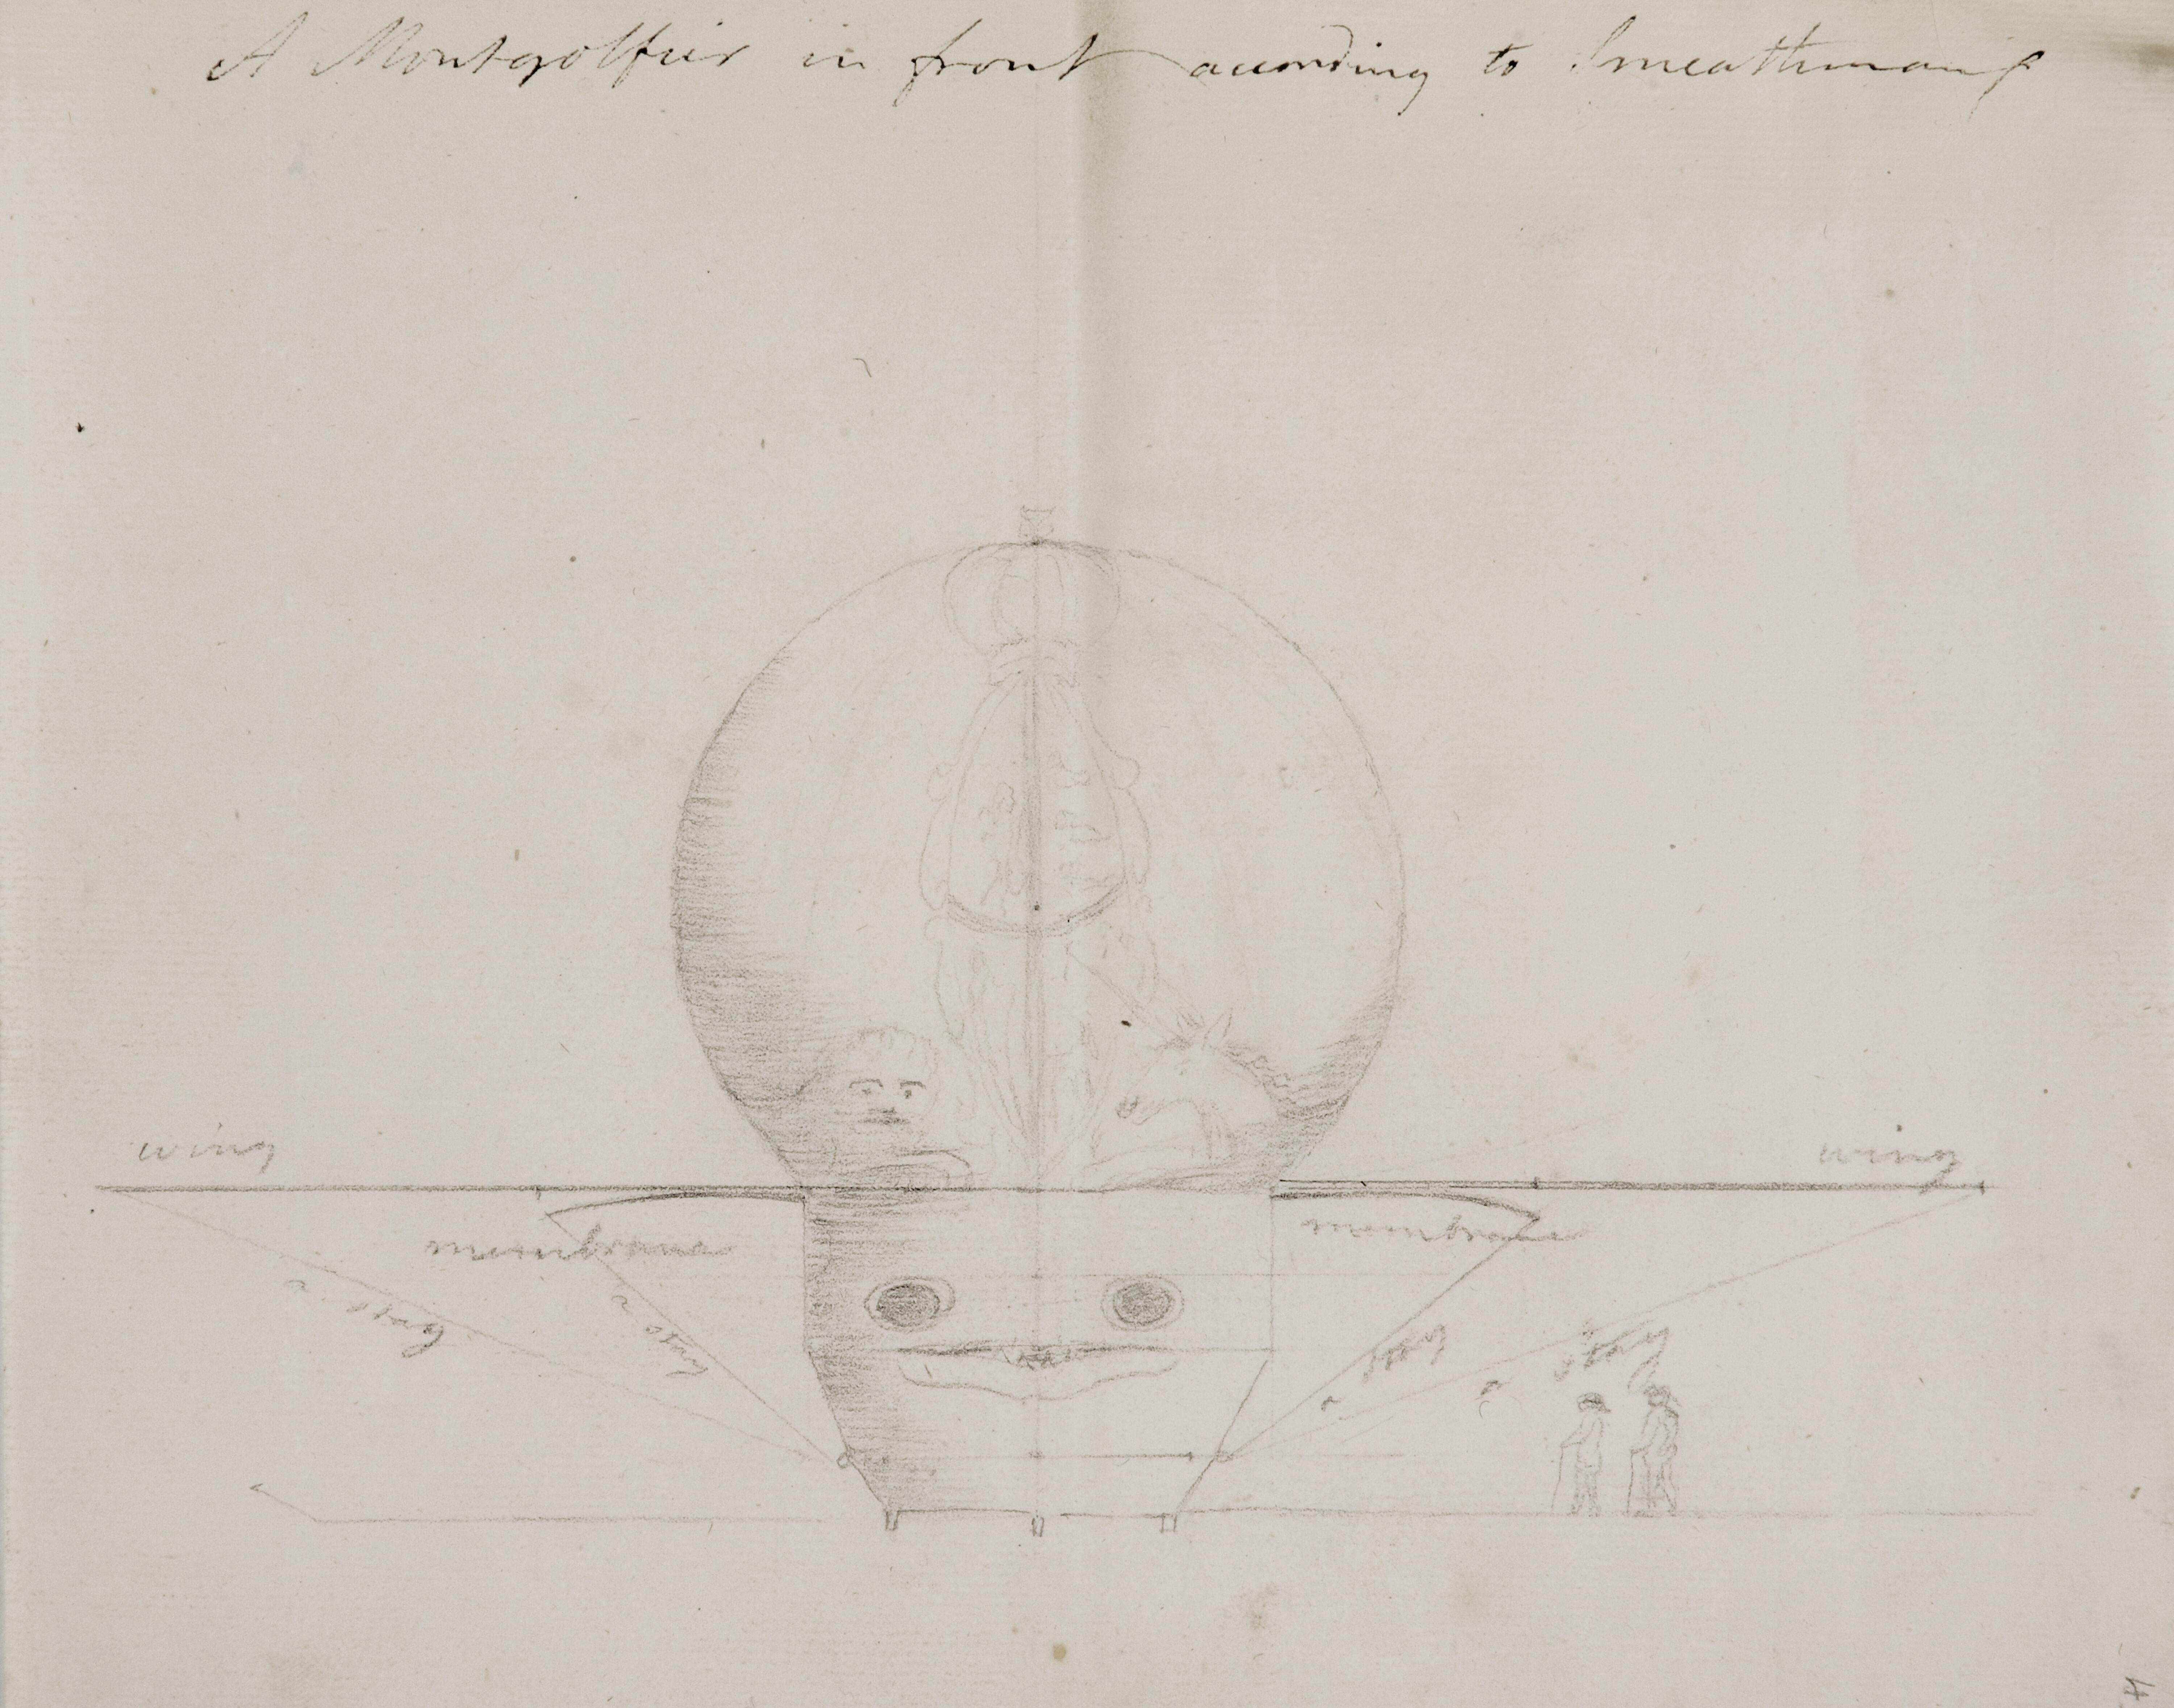 A Montgolfier in front according to Smeathman
wing
wing
membrane
membrane
a stay
a stay
a stay
a stay
4